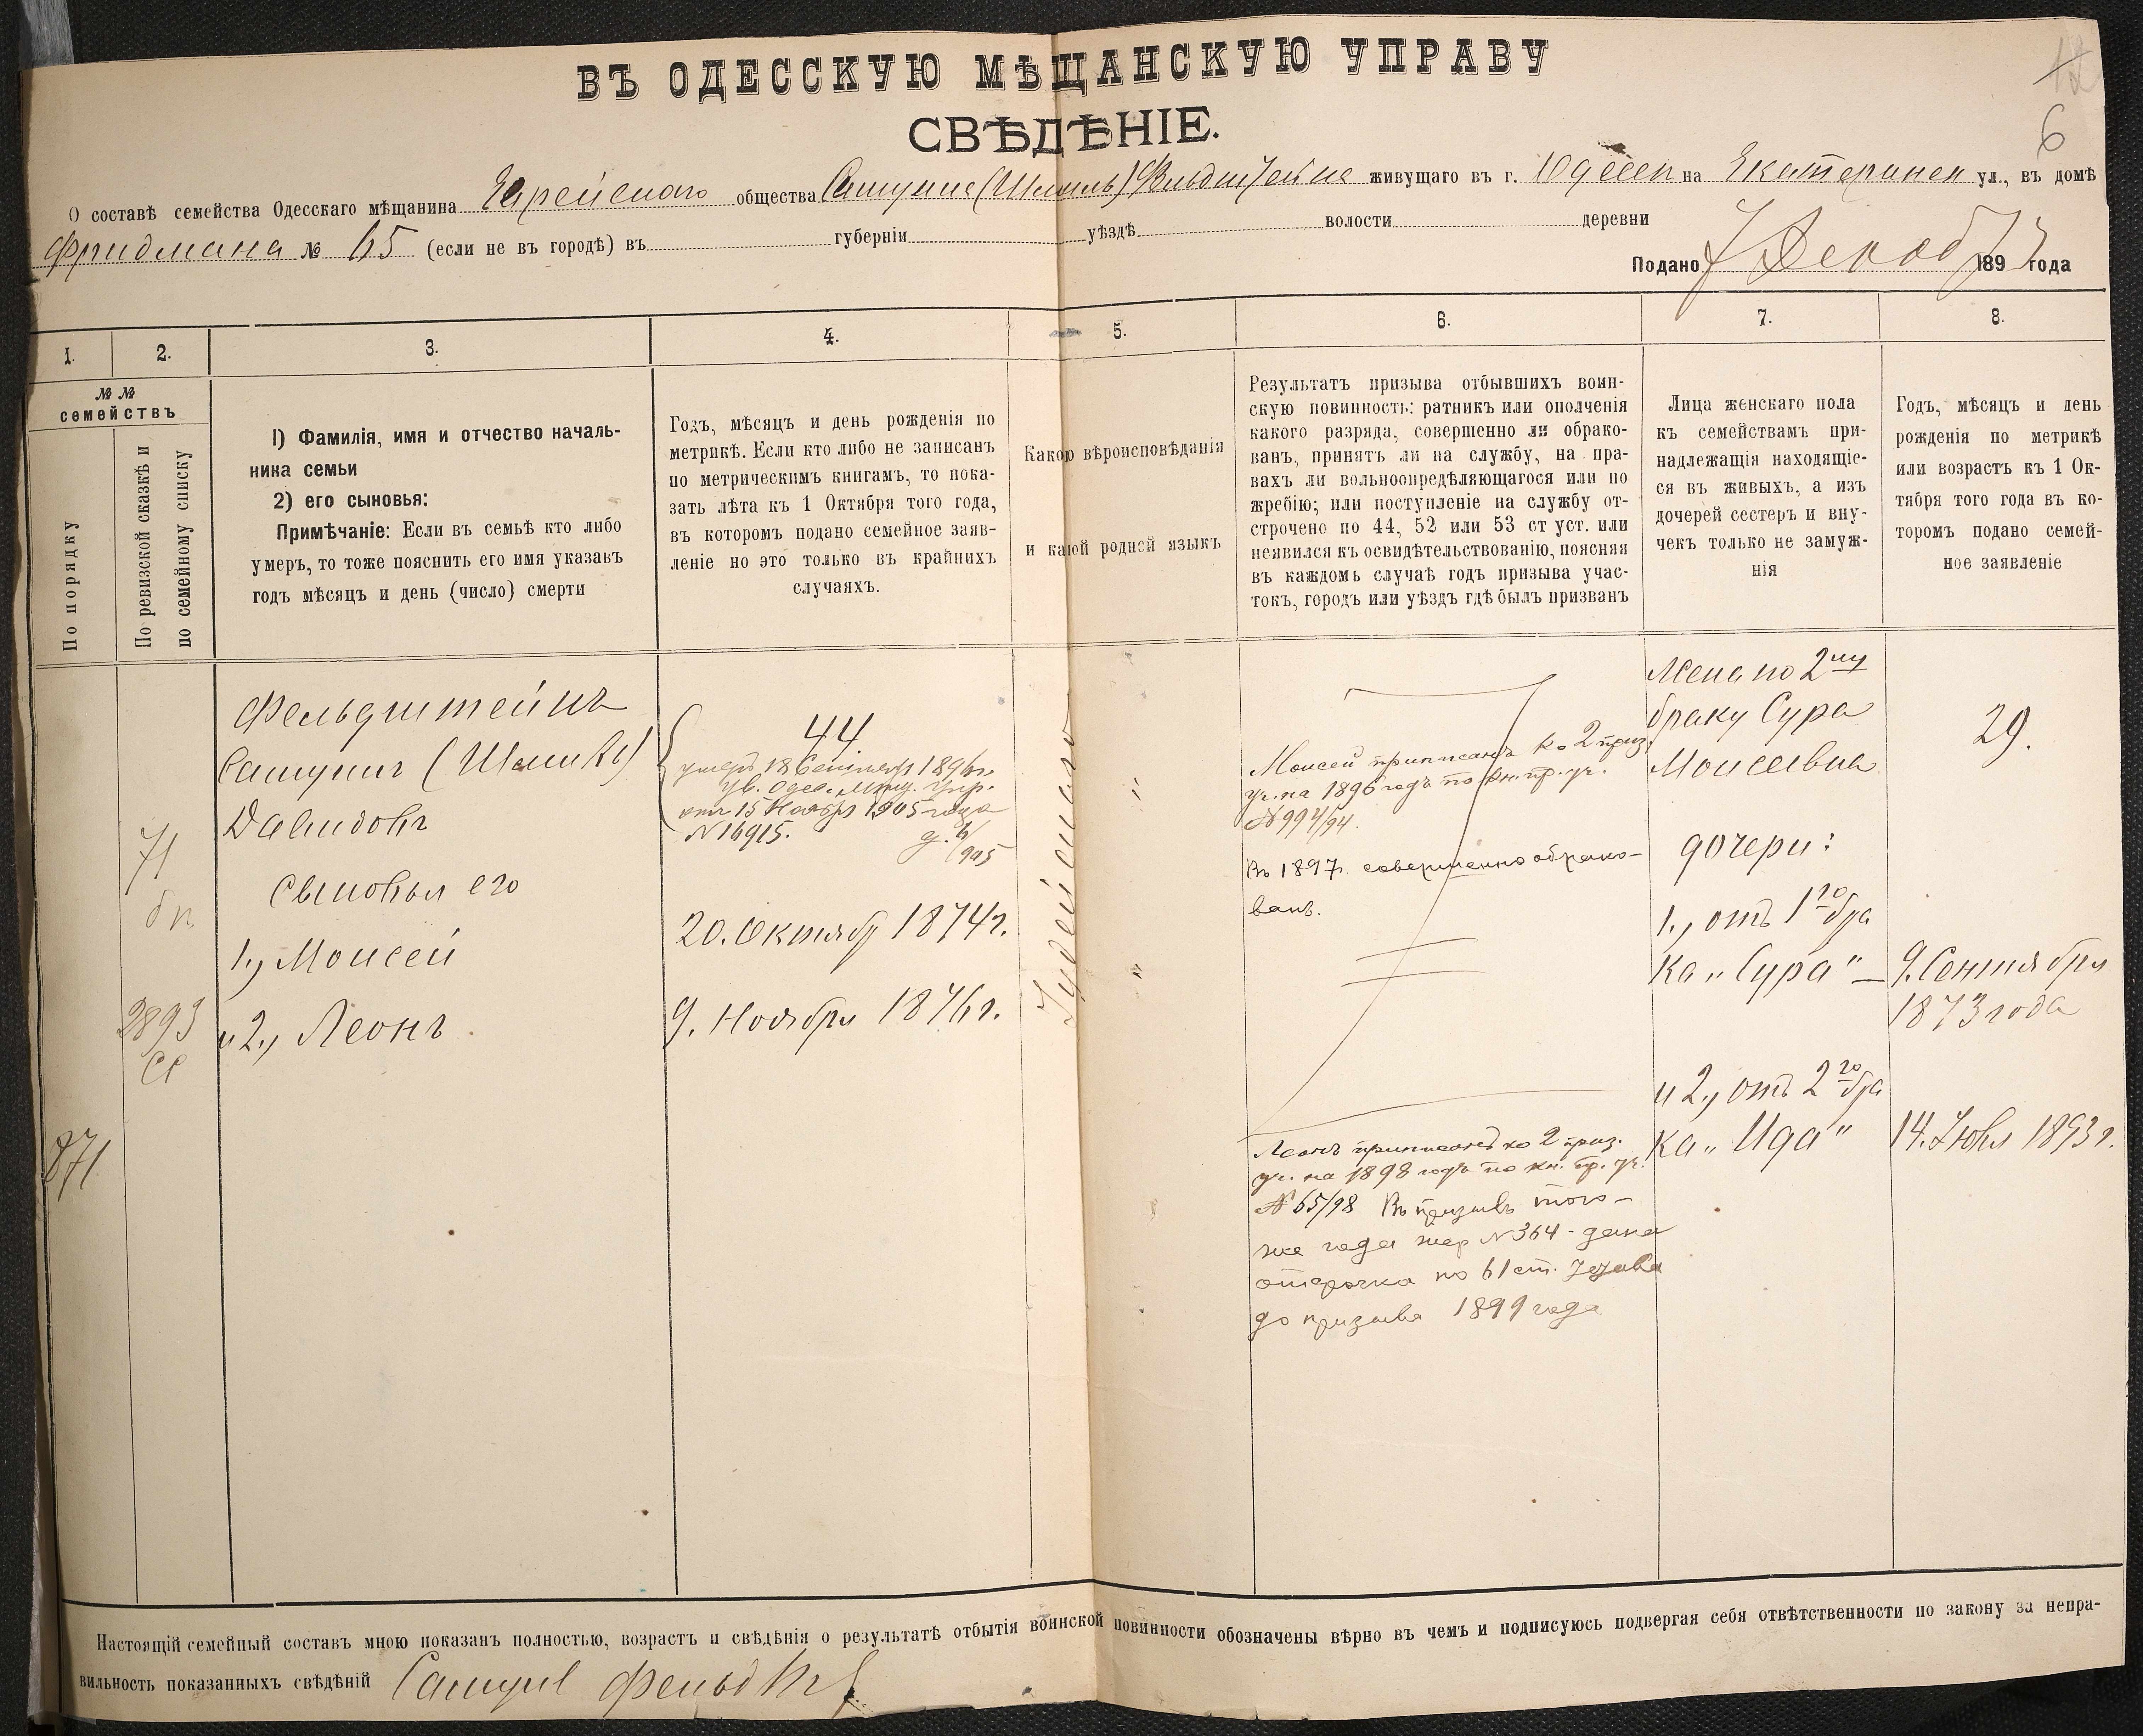 ВЪ ОДЕССКУЮ МѢЩАНСКУЮ УПРАВУ
СВѢДѢНІЕ.
6
О составѣ семейства Одесскаго мѣщанина Еврейского общества Самуила (Шмиль) Фельдштейна живущаго въ г. Одессѣ на Екатеринен ул., въ домѣ
Фридмана № 65 (если не въ городѣ) въ губерніи уѣздѣ волости деревни
Подано 7 Декаб 1893 года
1. 2. 3. 4. 5. 6. 7. 8.
№ № семействъ
По порядку
По ревизской сказкѣ и
по семейному списку
1) Фамилія, имя и отчество началь-
ника семьи
2) его сыновья:
Примѣчаніе: Если въ семьѣ кто либо
умеръ, то тоже пояснить его имя указавъ
годъ мѣсяцъ и день (число) смерти
Годъ, мѣсяцъ и день рожденія по
метрикѣ. Если кто либо не записанъ
по метрическимъ книгамъ, то пока-
зать лѣта къ 1 Октября того года,
въ котором подано семейное заяв-
леніе но это только въ крайнихъ
случаяхъ.
Какою вѣроисповѣданія
и какой родной языкъ
Результатъ призыва отбывшихъ воин-
скую повинность: ратникъ или ополченія
какого разряда, совершенно ли обрако-
ванъ, принятъ ли на службу, на пра-
вахъ ли вольноопредѣляющагося или по
жребію; или поступленіе на службу от-
строчено по 44, 52 или 53 ст уст. или
неявился къ освидѣтельствованію, поясняя
въ каждомъ случаѣ годъ призыва учас-
токъ, городъ или уѣздъ гдѣ былъ призванъ
Лица женскаго пола
къ семействамъ при-
надлежащія находящіе-
ся въ живыхъ, а изъ
дочерей сестеръ и вну-
чекъ только не замуж-
нія
Годъ, мѣсяцъ и день
рожденія по метрикѣ
или возрастъ къ 1 Ок-
тября того года въ ко-
торомъ подано семей-
ное заявленіе
871
71
2893
Фельдштейнъ
Самуилъ (Шмиль)
Давидовъ
Сыновья его
1., Моисей
и 2., Леонъ
44
умеръ 18 Сентября 1896г.
Ув. Одес. Мѣщ. Упр.
отъ 15 Ноября 1905 года
№16915.
20. Октябр 1874г.
9. Ноября 1876г.
Іудейскаго
Моисей приписанъ ко 2 приз.
уч. на 1896 годъ по кн. пр. уч.
№ 994/94.
Въ 1897г. совершенно обрако-
ванъ.
Леонъ приписанъ ко 2 приз.
уч. на 1898 годъ по кн. пр. уч.
№ 65/98 Въ призывъ того-
же года жер №364 - дана
отсрочка по 61 ст. Устава
до призыва 1899 года
Жена по 2му
браку Сура
Моисеевна
дочери:
1., отъ 1го бра
ка „Сура" —
и 2., отъ 2го бра
ка „Ида"
29.
9. Сентября
1873 года
14. Іюля 1893 г.
Настоящій семейный составъ мною показанъ полностью, возрастъ и свѣдѣнія о результатѣ отбытія воинской повинности обозначены вѣрно въ чемъ и подписуюсь подвергая себя отвѣтственности по закону за непра-
вильность показанныхъ свѣдѣній Самуил